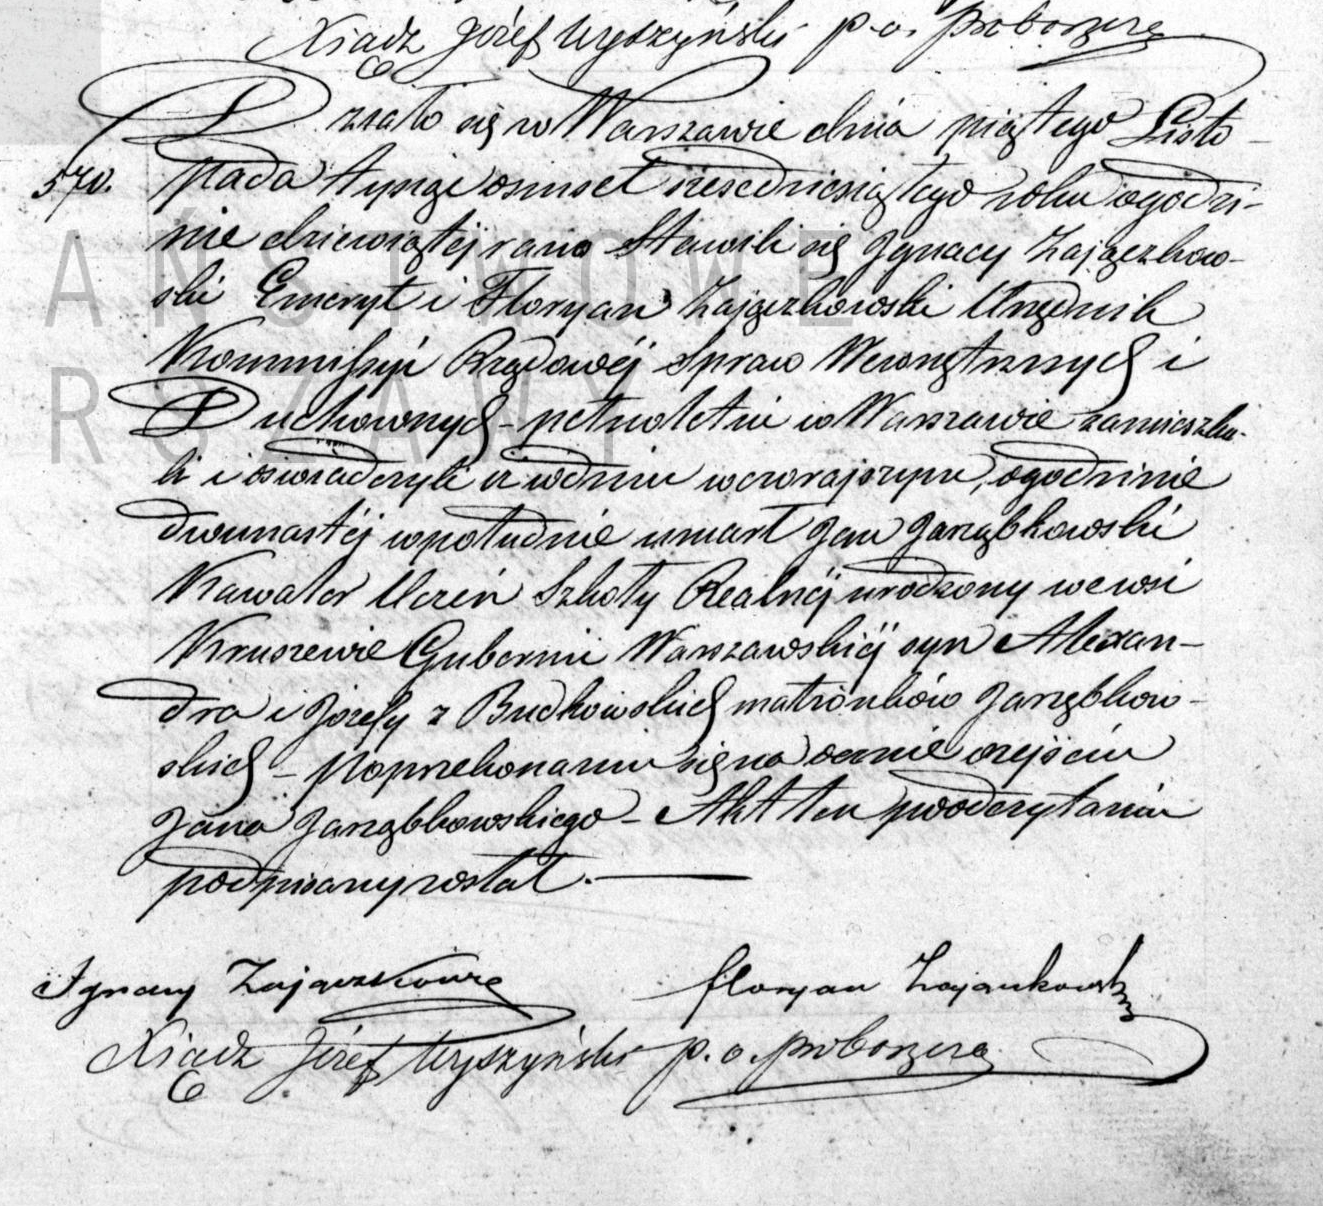 Xiądz Józef Wyszyński p. o. proboszcza
Działo się w Warszawie dnia piątego Listo-
570. pada tysiąc osmset sześcdziesiątego roku o godzi-
nie dziewiątéj rano Stawili się Ignacy Zajączkow-
ski Emeryt i Floryan Zajączkowski Urzędnik
Kommissyi Rządowéj Spraw Wewnętrznych i
Duchownych – pełnoletni w Warszawie zamieszka-
li i oświadczyli iż w dniu wczorajszym, o godzinie
dwunastéj w południe umarł Jan Jarząbkowski
Kawaler Uczeń Szkoły Realnéj urodzony we wsi
Kruszewie Gubernii Warszawskiéj syn Alexan-
dra i Józefy z Budkowskich małżonków Jarząbkow-
skich – Po przekonaniu się na ocznie o zejściu
Jana Jarząbkowskiego – Akt ten po odczytaniu
podpisany został. —
Ignacy Zajączkowski Floryan Zajączkowski
Xiądz Józef Wyszyński p. o. proboszcza
AŃSTWOWE
RSZAWY